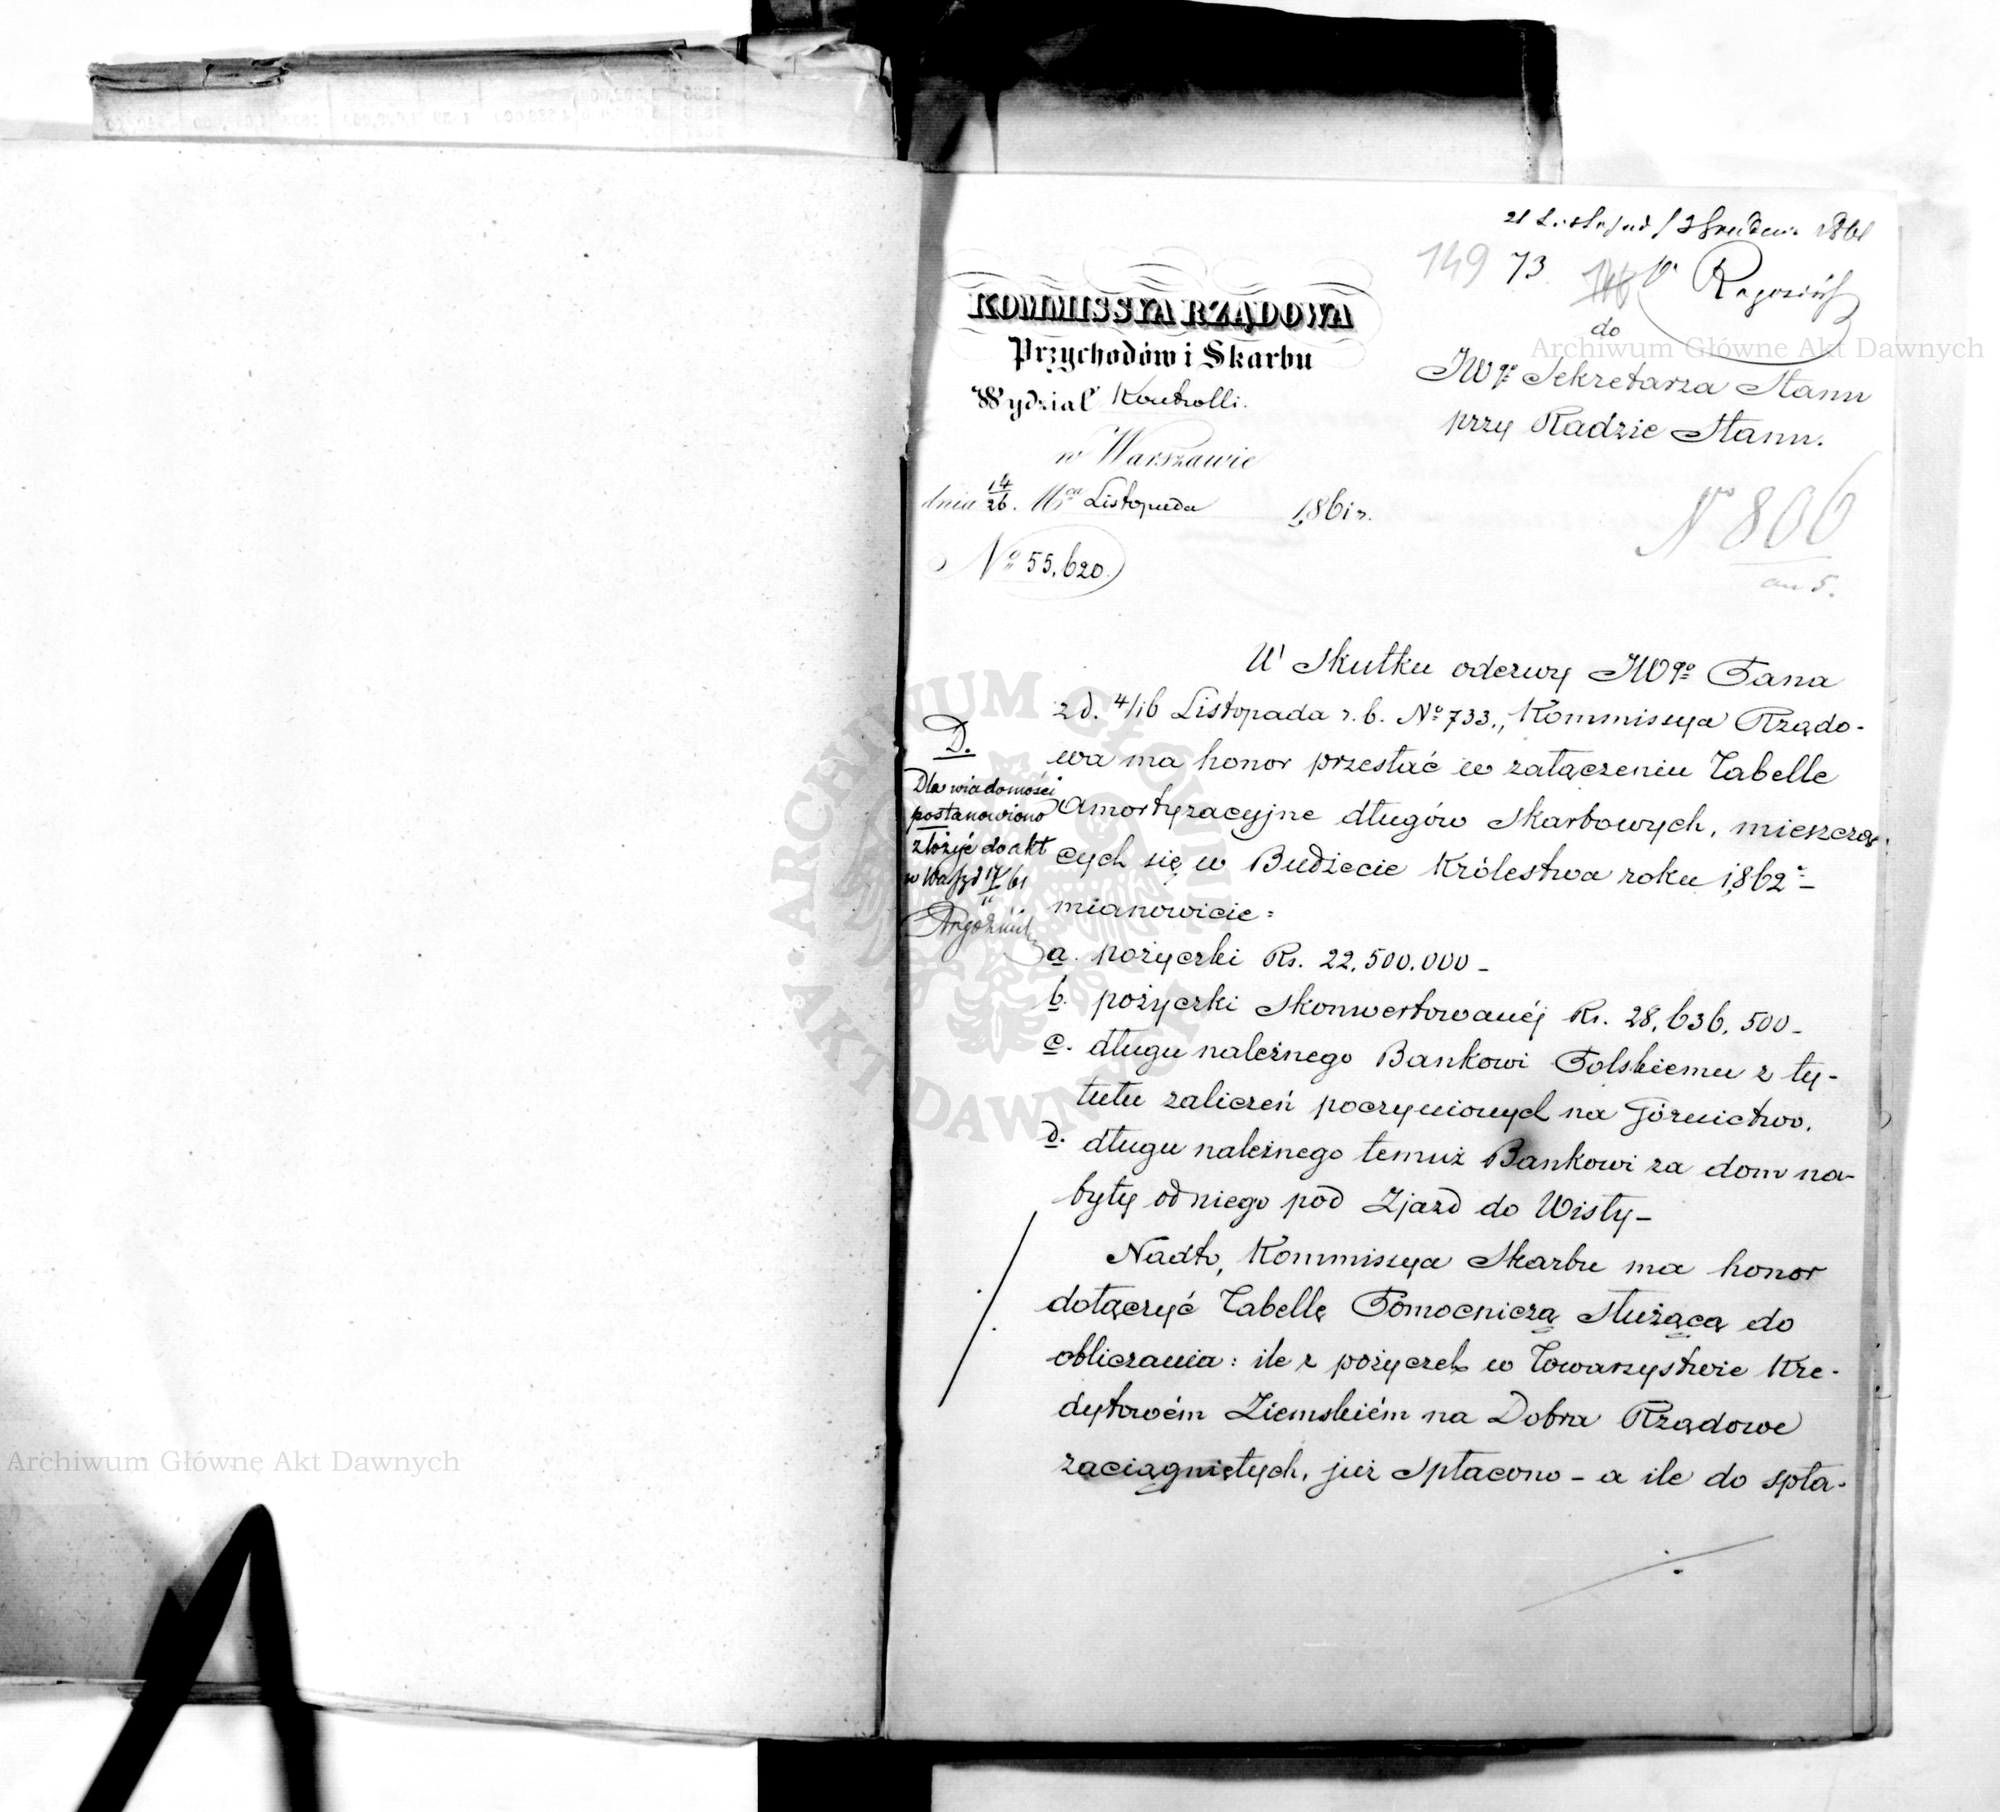 21 Listopad / 3 Grudnia 1861
149 73
KOMMISSYA RZĄDOWA
Przychodów i Skarbu
Wydział Kontrolli.
w Warszawie
dnia 14/26. Mca Listopada 1861 r.
No 55,620.
do
JWgo Sekretarza Stanu
przy Radzie Stanu.
No 806
W skutku odezwy JWgo Pana
z d. 4/16 Listopada r. b. No 733., Kommissya Rządo-
wa ma honor przesłać w załączeniu Tabelle
Amortyzacyjne długów Skarbowych, mieszczą-
cych się w Budżecie Królestwa roku 1862 -
mianowicie:
a. pożyczki Rs. 22,500.000 -
b. pożyczki skonwertowanéj Rs. 28,636,500 -
c. długu należnego Bankowi Polskiemu z ty-
tułu zaliczeń poczynionych na Górnictwo.
d. długu należnego temuż Bankowi za dom na-
byty od niego pod Zjazd do Wisły -
Nadto, Kommissya Skarbu ma honor
dołączyć Tabellę Pomocniczą służącą do
obliczania: ile z pożyczek w Towarzystwie Kre-
dytowém Ziemskiém na Dobra Rządowe
zaciągniętych, już spłacono - a ile do spła-
D.
Dla wiadomości
postanowiono
złożyć do akt
Archiwum Główne Akt Dawnych
Archiwum Główne Akt Dawnych
ARCHIWUM GŁÓWNE AKT DAWNYCH